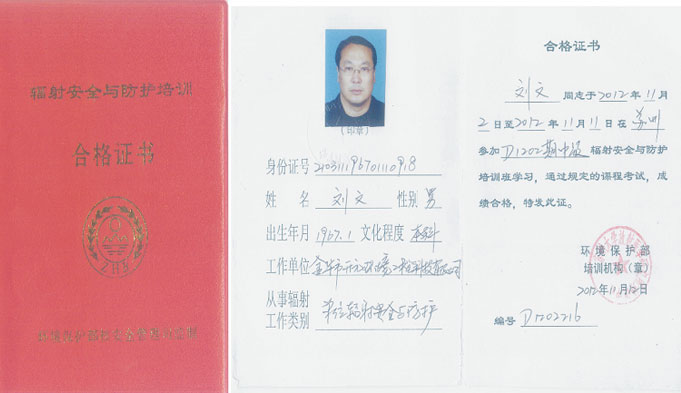 辐射安全与防护培训
合格证书
(印章)
身份证号 210311196701110918
姓 名 刘文 性别 男
出生年月 1967.1 文化程度 本科
工作单位 金华市
从事辐射
工作类别 辐射安全与防护
合格证书
刘文 同志于2012年11月
2日至2012年11月11日在苏州
参加D1202期中级辐射安全与防护
培训班学习，通过规定的课程考试，成
绩合格，特发此证。
环境保护部
培训机构(章)
2012年11月12日
编号 D1202216